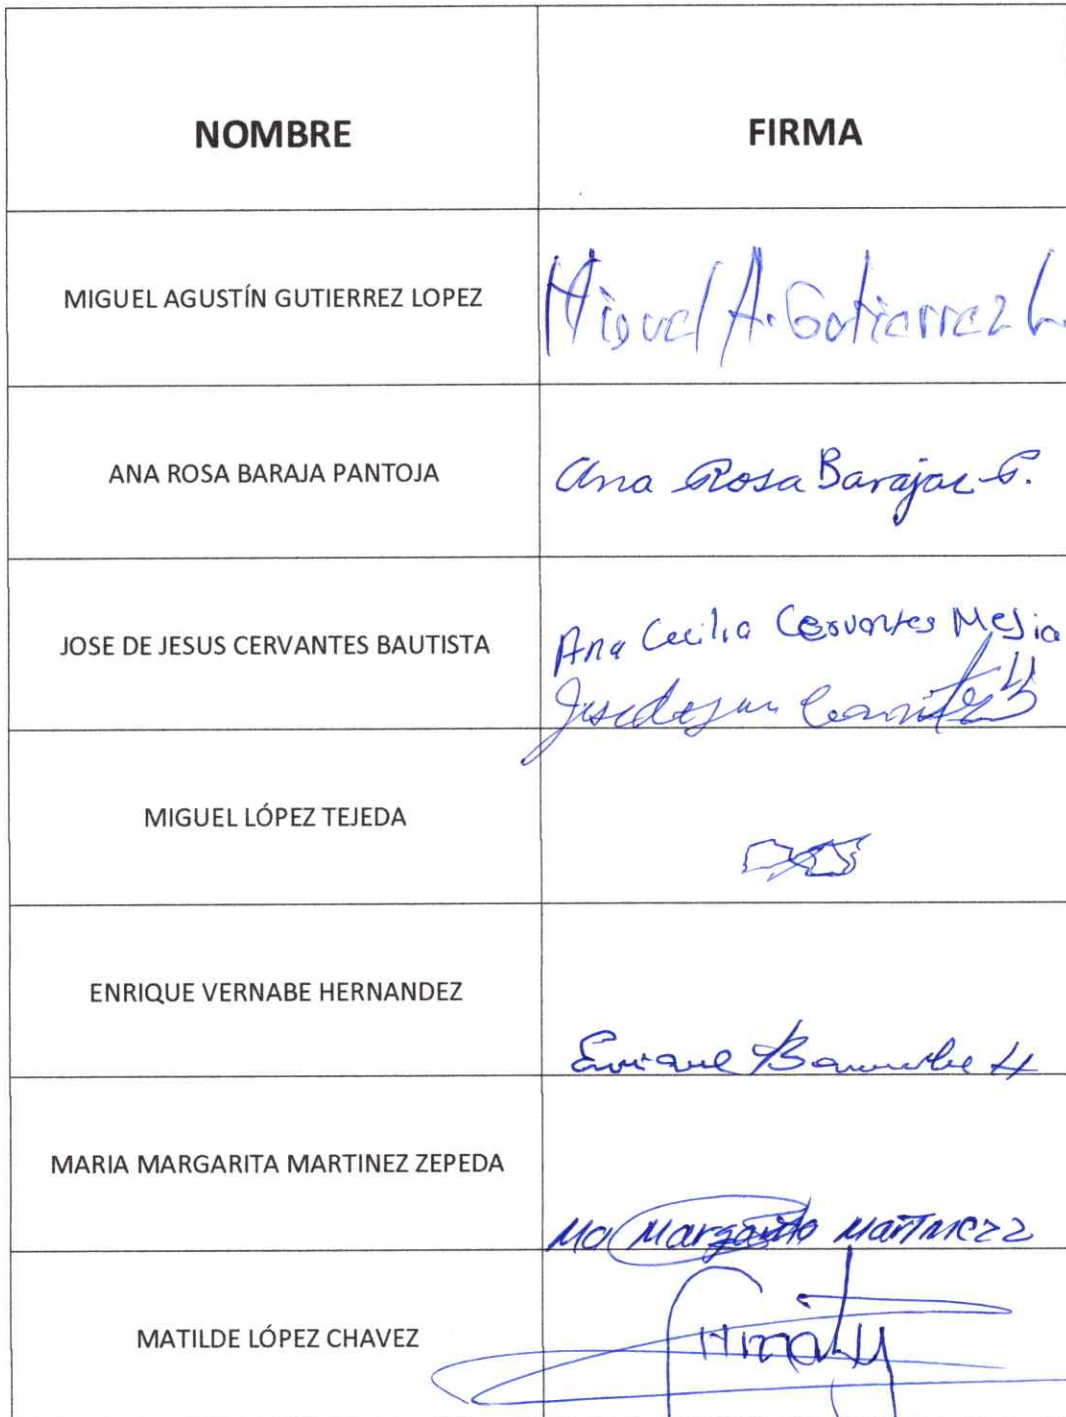 NOMBRE FIRMA
MIGUEL AGUSTÍN GUTIERREZ LOPEZ Miguel A. Gutierrez L.
ANA ROSA BARAJA PANTOJA Ana Rosa Barajas P.
JOSE DE JESUS CERVANTES BAUTISTA Ana Cecilia Cervantes Mejia
Jose de Jesus Cervantes B
MIGUEL LÓPEZ TEJEDA
ENRIQUE VERNABE HERNANDEZ Enrique Bernabe H
MARIA MARGARITA MARTINEZ ZEPEDA Ma Margarita Martinez Z
MATILDE LÓPEZ CHAVEZ